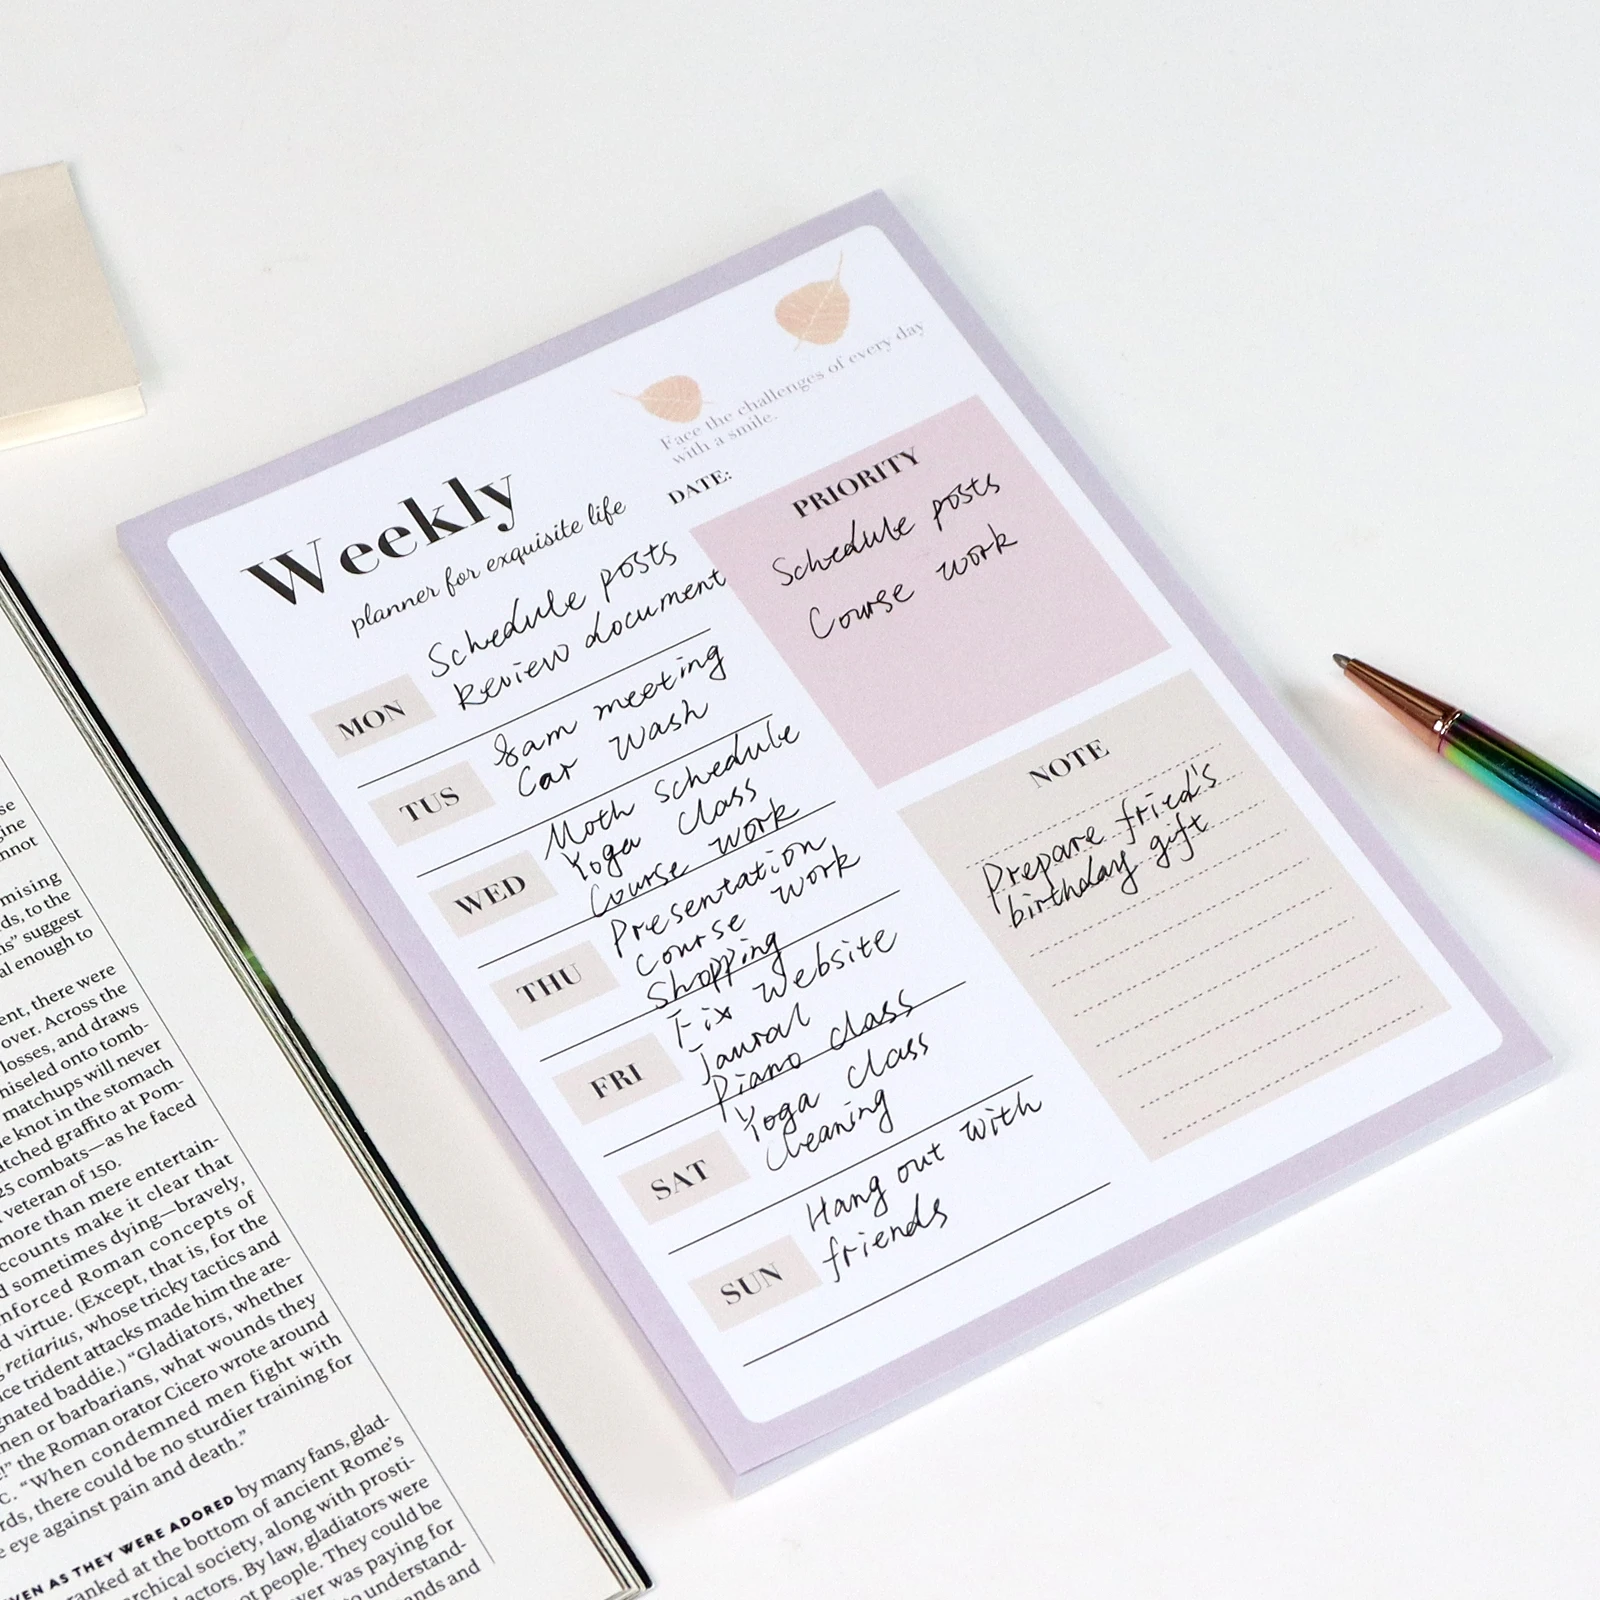 Face the challenges of every day
with a smile.
DATE:
Weekly
planner for exquisite life
MON
Schedule posts
Review document
TUS
8am meeting
Car wash
WED
Moth schedule
Yoga class
Course work
THU
Presentation
Course work
Shopping
FRI
Fix website
Jaural
Piano class
SAT
Yoga class
Cleaning
SUN
Hang out with
friends
PRIORITY
Schedule posts
Course work
NOTE
Prepare fried's
birthday gift
se
gine
nnot
mising
ds, to the
ns" suggest
al enough to
ent, there were
over. Across the
losses, and draws
hiseled onto tomb-
matchups will never
e knot in the stomach
tched graffito at Pom-
25 combats—as he faced
veteran of 150.
more than mere entertain-
ccounts make it clear that
d sometimes dying—bravely,
nforced Roman concepts of
d virtue. (Except, that is, for the
retiarius, whose tricky tactics and
ce trident attacks made him the are-
gnated baddie.) "Gladiators, whether
men or barbarians, what wounds they
!" the Roman orator Cicero wrote around
C. "When condemned men fight with
rds, there could be no sturdier training for
e eye against pain and death."
VEN AS THEY WERE ADORED by many fans, glad-
ranked at the bottom of ancient Rome's
archical society, along with prosti-
actors. By law, gladiators were
ot people. They could be
ver was paying for
to understand-
ands and